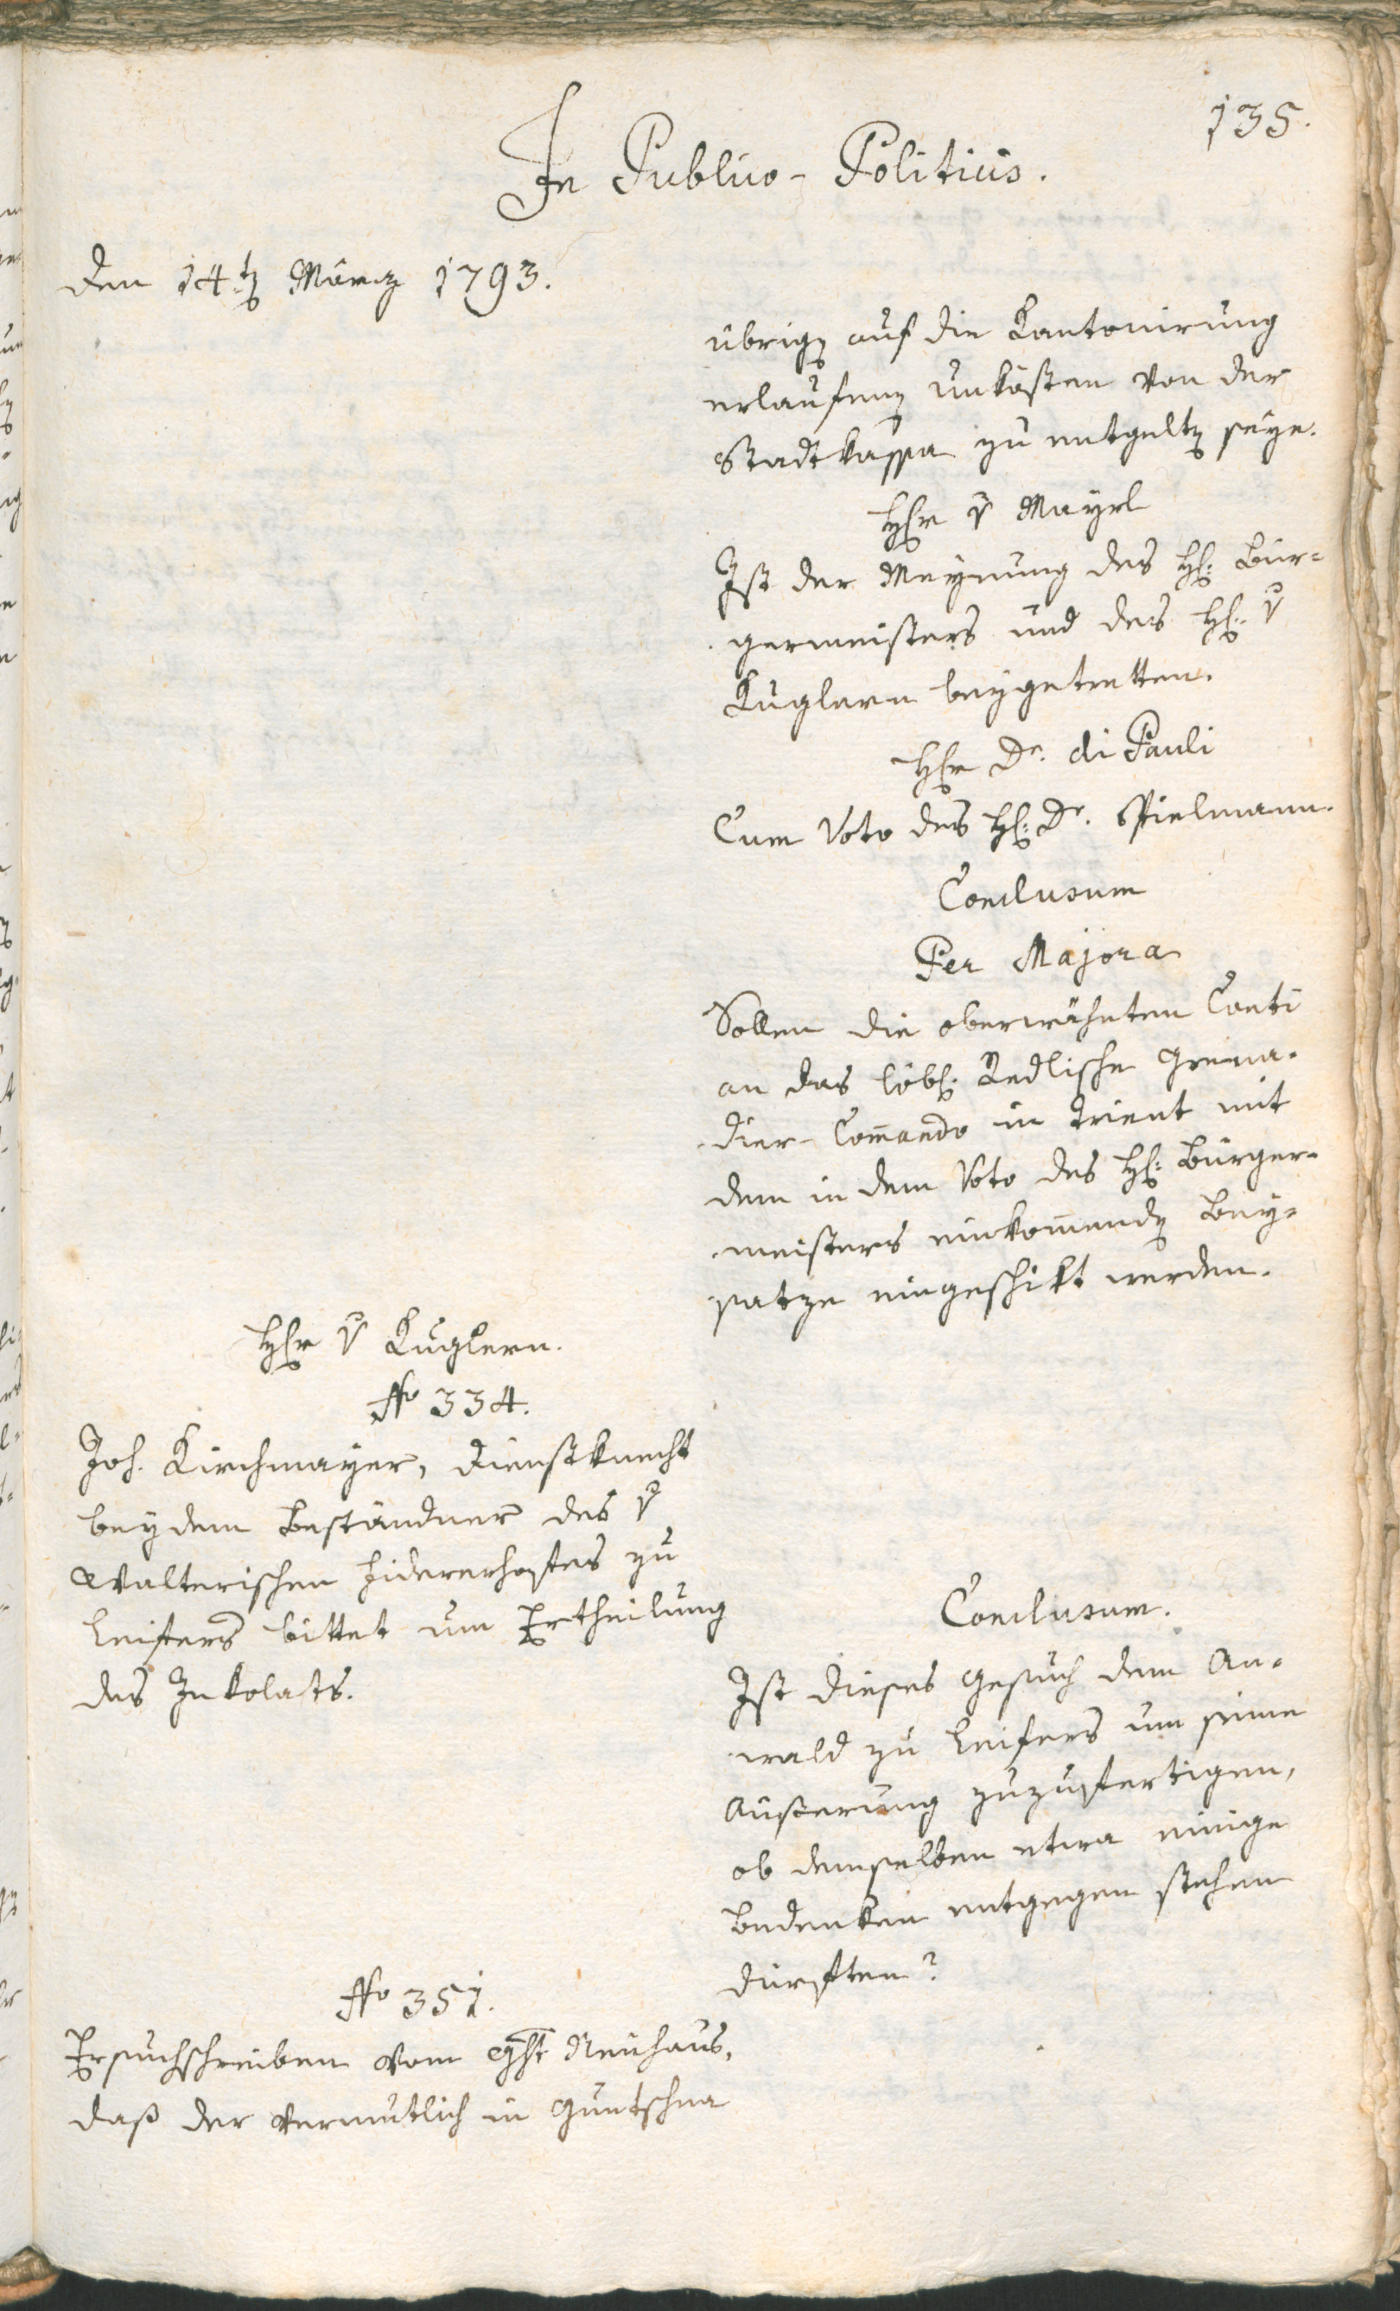 135.
In Publico-Politicis.
den 14tꝫ Märꜩ 1793.
übrigꝫ auf die Kantonirung
erlaufenꝫ Unkösten von der
Stadtkassa zu entgeltꝫ seye.
Hℓr v Mayrl
Ist der Meynung des Hℓ: Bür=
germeisters und des Hℓ: v
Kuglern beygetretten.
Hℓr Dr. di Pauli
Cum Voto des Hℓ: Dr. Spielmann.
Conclusum
Per Majora
Sollen die oberwähnten Conti
an das löbl: Redlische Grena=
dier-Com̄ando in Trient mit
dem in dem Voto des Hℓ: Bürger=
meisters einkom̄endꝫ Bey=
satze eingeschikt werden.
Hℓr v Kuglern.
No 334.
Joh. Kirchmayer, Dienstknecht
bey dem Beständner des v
Walterischen Hidererhofes zu
Leifers bittet um Ertheilung
des Inkolats.
Conclusum.
Ist dieses Gesuch dem An=
wald zu Leifers um seine
Äußerung zuzufertigen,
ob demselben etwa einige
Bedenken entgegen stehen
dürften?
No 351.
Ersuchschreiben vom Ght Neuhaus,
daß der vermutlich in Guntschna